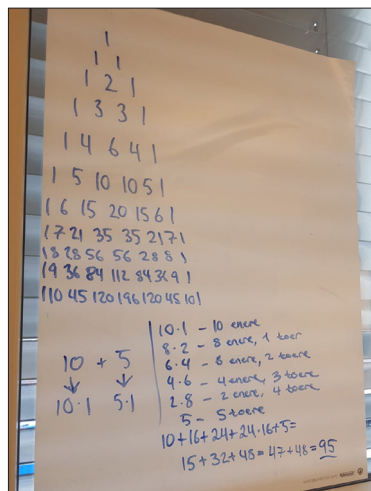 1
1 1
1 2 1
1 3 3 1
1 4 6 4 1
1 5 10 10 5 1
1 6 15 20 15 6 1
1 7 21 35 35 21 7 1
1 8 28 56 56 28 8 1
1 9 36 84 112 84 36 9 1
1 10 45 120 196 120 45 10 1
10 + 5
↓ ↓
10·1 5·1
10·1 – 10 enere
8·2 – 8 enere, 1 toer
6·4 – 6 enere, 2 toere
4·6 – 4 enere, 3 toere
2·8 – 2 enere, 4 toere
5 – 5 toere
10+16+24+24·16+5=
15+32+48=47+48=95